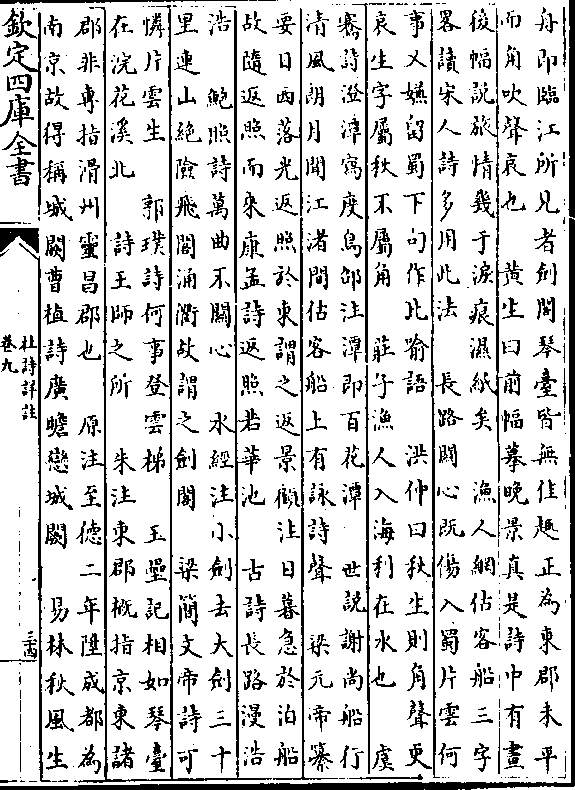 舟即臨江所見者劍閣琴臺皆無佳趣正為東郡未平
而角吹聲哀也　黃生曰前幅摹晚景真是詩中有畫
後幅說旅情幾于淚痕濕紙矣　漁人網估客船三字
畧讀宋人詩多用此法　長路關心既傷入蜀片雲何
事又嫌留蜀下句作比喻語　洪仲曰秋生則角聲更
哀生字屬秋不屬角　莊子漁人入海利在水也　虞
騫詩澄潭寫度鳥邵注潭即百花潭　世說謝尚船行
清風朗月聞江渚間估客船上有詠詩聲　梁元帝纂
要日西落光返照於東謂之返景顧注日暮急於泊船
故隨返照而來康孟詩返照若華池　古詩長路漫浩
浩　鮑照詩萬曲不關心　水經注小劍去大劍三十
里連山絕險飛閣通衢故謂之劍閣　梁簡文帝詩可
憐片雲生　郭璞詩何事登雲梯　玉壘記相如琴臺
在浣花溪北　詩王師之所　朱注東郡概指京東諸
郡非專指滑州靈昌郡也　原注至德二年陞成都為
南京故得稱城闕曹植詩廣瞻戀城闕　易林秋風生
欽定四庫全書
杜詩詳註
卷九
三西